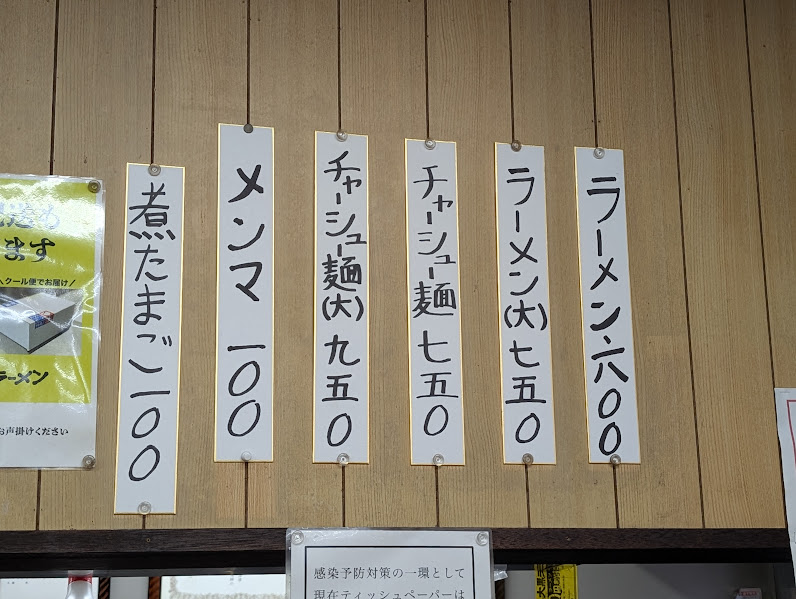 ラーメン 六〇〇
ラーメン(大)七五〇
チャーシュー麺 七五〇
チャーシュー麺(大)九五〇
メンマ 一〇〇
煮たまご一〇〇
ます
クール便でお届け/
ラーメン
お声掛けください
感染予防対策の一環として
現在ティッシュペーパーは